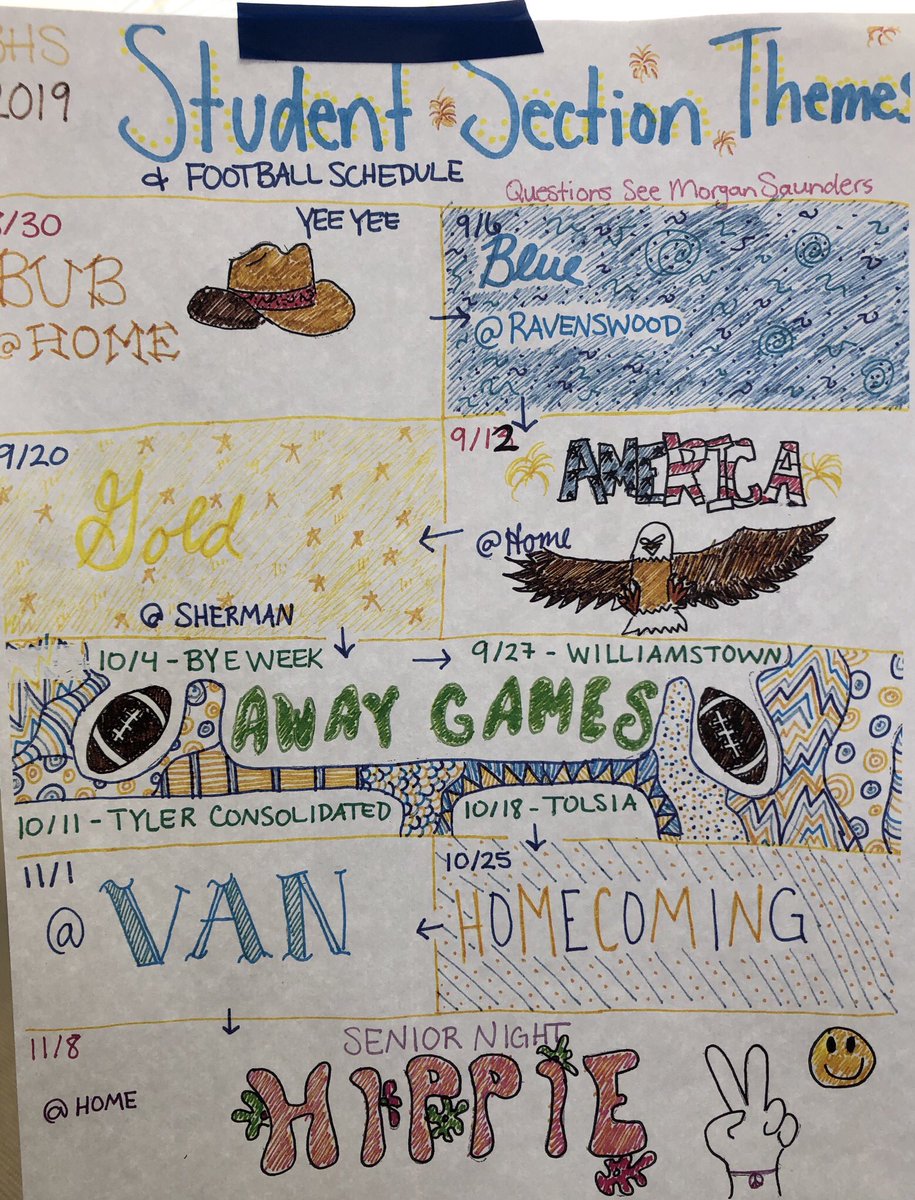 BHS
2019
Student Section Themes
& FOOTBALL SCHEDULE
Questions See Morgan Saunders
8/30
YEE YEE
BUB
@HOME
9/6
Blue
@RAVENSWOOD
9/20
Gold
@ SHERMAN
9/12
AMERICA
@Home
10/4 - BYE WEEK
9/27 - WILLIAMSTOWN
AWAY GAMES
10/11 - TYLER CONSOLIDATED
10/18 - TOLSIA
11/1
@ VAN
10/25
HOMECOMING
11/8
SENIOR NIGHT
@ HOME
HIPPIE